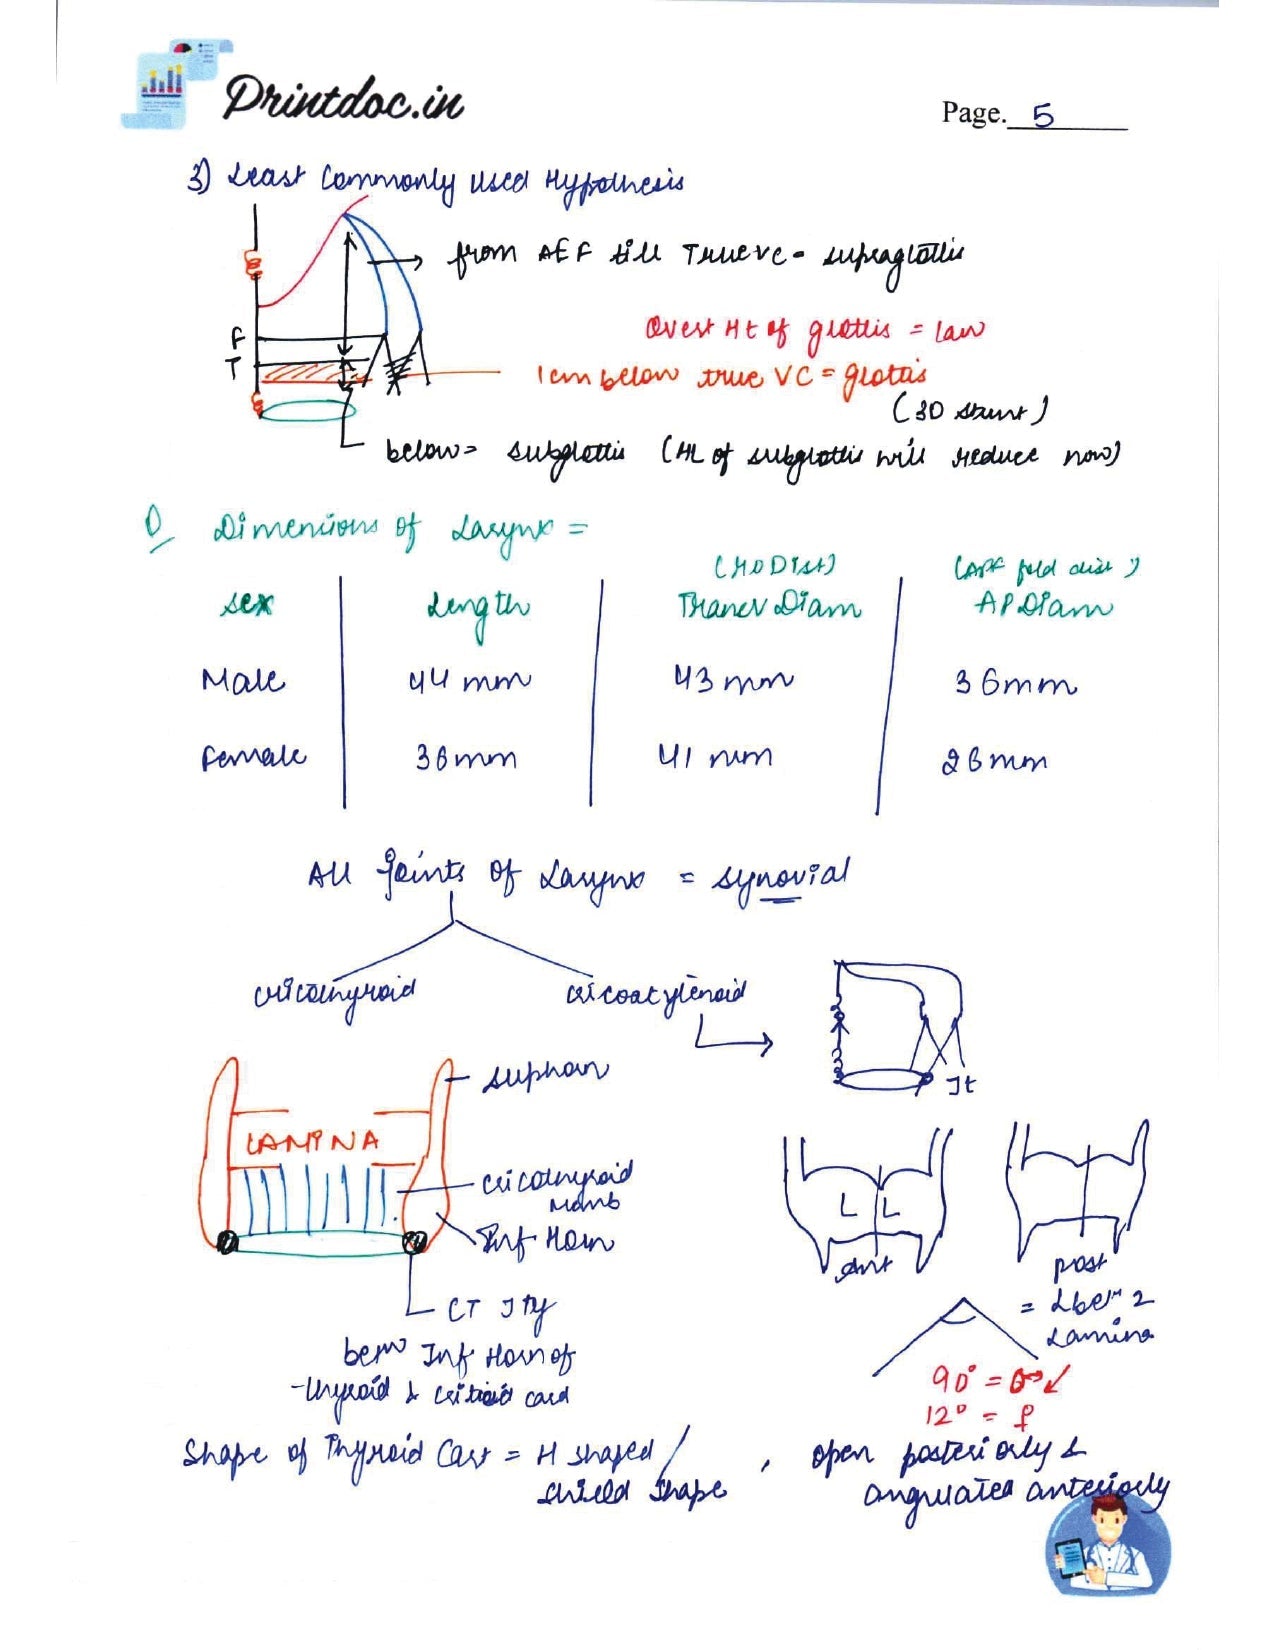 Printdoc.in
Page. 5
3) Least Commonly Used Hypothesis
from AEF till True VC = supraglottis
F
T
Ht of glottis = 1cm
1cm below true VC = glottis
(3D
below = subglottis (Ht of subglottis will reduce now)
Dimensions of Larynx =
Sex
Length
Transv Diam
AP Diam
Male
44 mm
43 mm
36mm
Female
36mm
41 mm
26mm
All joints of Larynx = synovial
cricothyroid
cricoarytenoid
Jt
Suphorn
LAMINA
cricothyroid
memb
Inf Horn
L L
Ant
post
= Lbew 2
Lamina
CT Jt
betw Inf Horn of
thyroid & cricoid cart
90° = ♂
12° = f
Shape of Thyroid Cart = H shaped /
shield shape
, open posteriorly &
angulated anteriorly